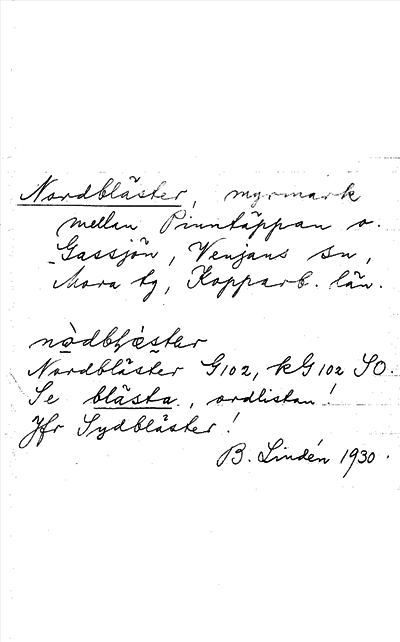 Nordbläster, myrmark
mellan Pinntäppan o.
Gassjön, Venjans sn,
Mora tg, Kopparb. län.
Nordbläster G102, kG102 SO.
Se blästa, ordlistan!
Jfr Sydbläster!
B. Lindén 1930.